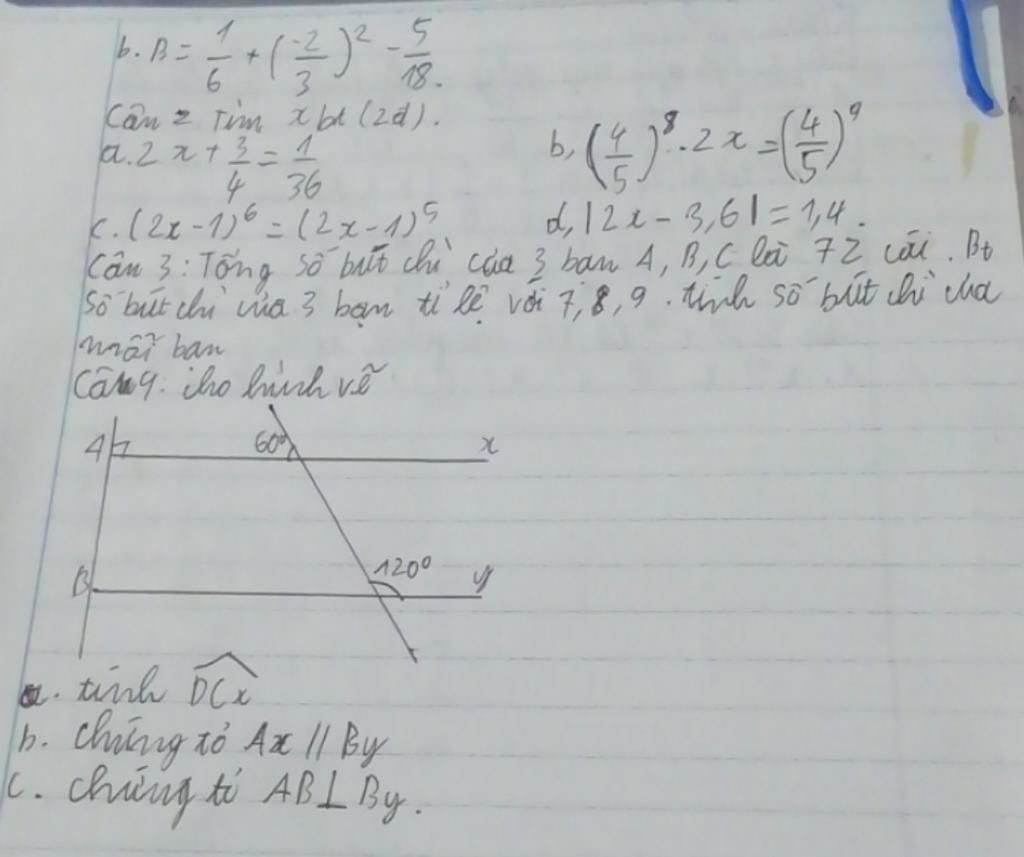 b. B = 1/6 + (-2/3)² - 5/18.
Câu 2 Tìm x bt (2đ).
a. 2x + 3/4 = 1/36
b, (4/5)⁸ . 2x = (4/5)⁹
c. (2x-1)⁶ = (2x-1)⁵
d, |2x - 3,6| = 1,4.
Câu 3: Tổng số bút chì của 3 bạn A, B, C là 72 cái. Bt
số bút chì của 3 bạn tỉ lệ với 7, 8, 9. tính số bút chì của
mỗi bạn
Câu 4: cho hình vẽ
A 60° x
B 120° y
a. tính DCx
b. chứng tỏ Ax // By
c. chứng tỏ AB ⊥ By.